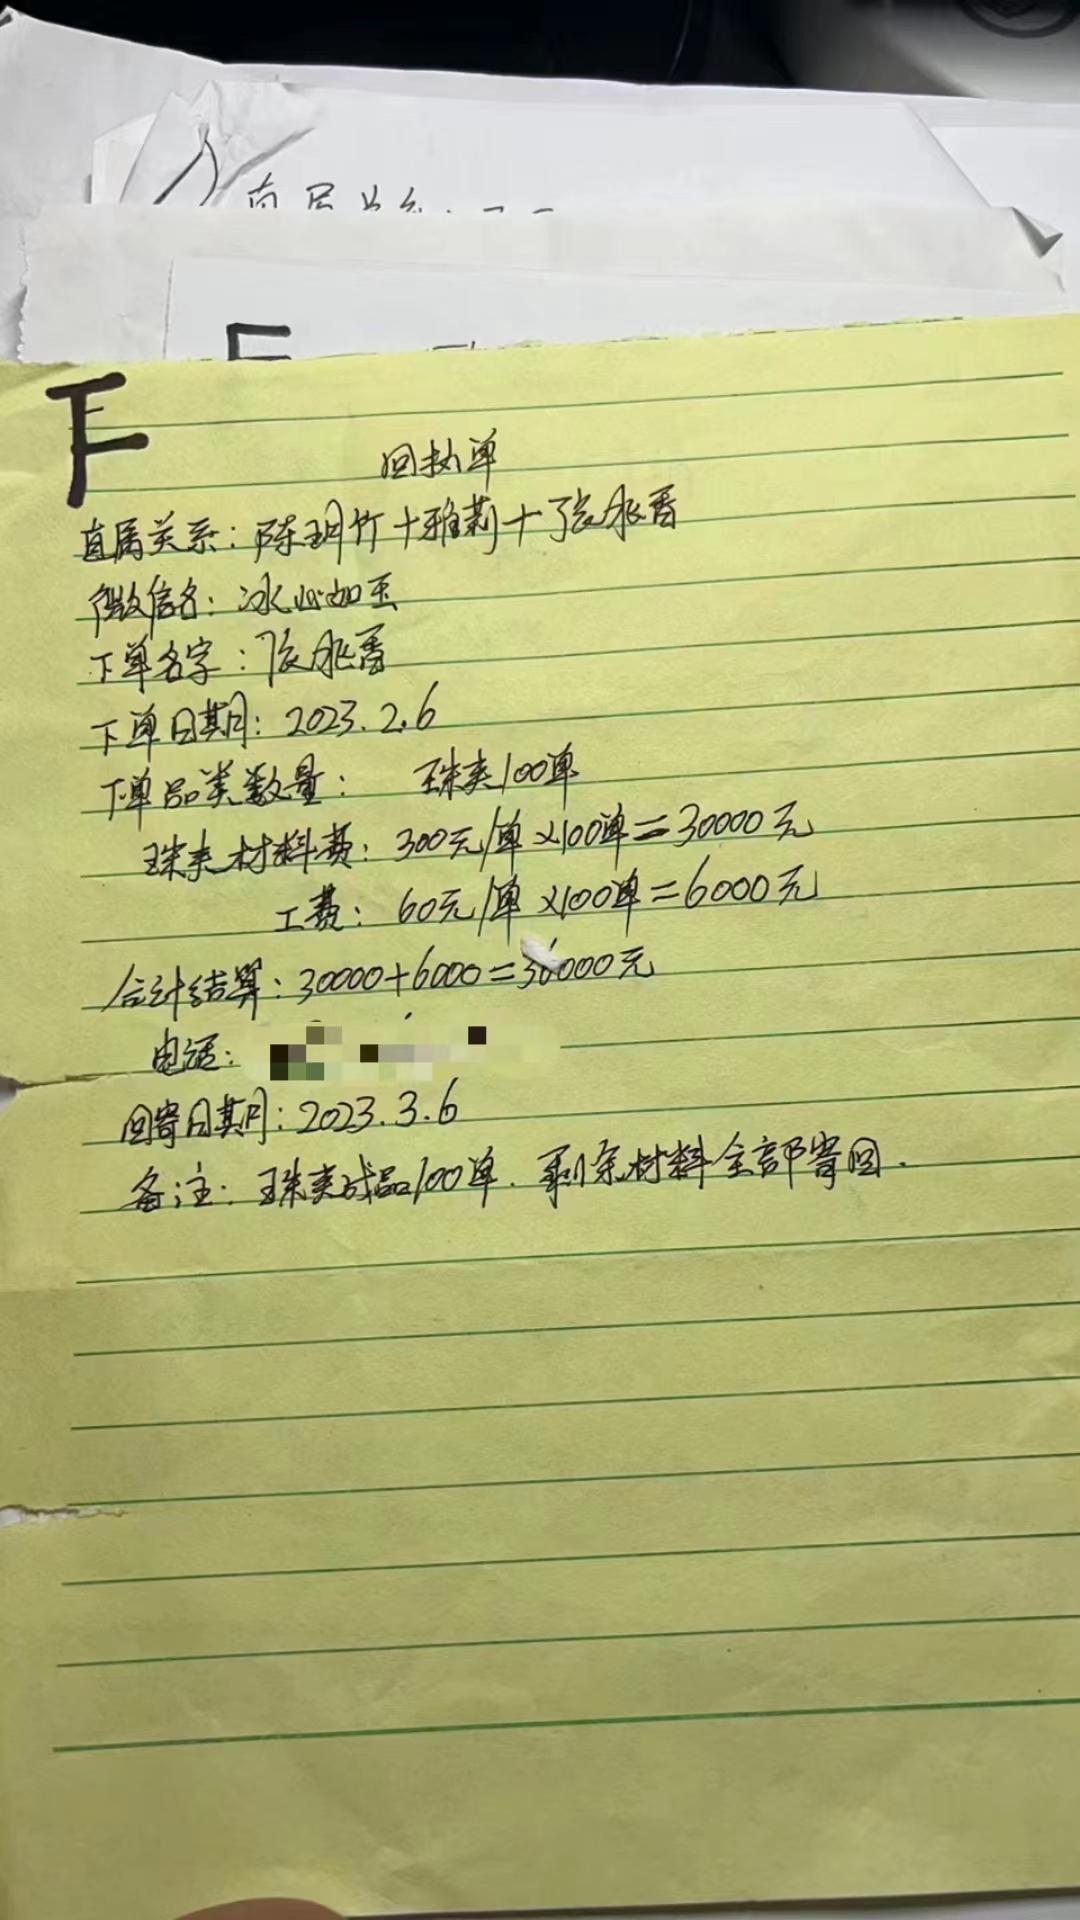 F
回执单
直属关系：陈玥竹+雅莉+张永香
微信名：冰心如玉
下单名字：张永香
下单日期：2023.2.6
下单品类数量： 珠夹100单
珠夹材料费：300元/单×100单=30000元
工费：60元/单×100单=6000元
合计结算：30000+6000=36000元
电话：
回寄日期：2023.3.6
备注：珠夹成品100单.剩余材料全部寄回.